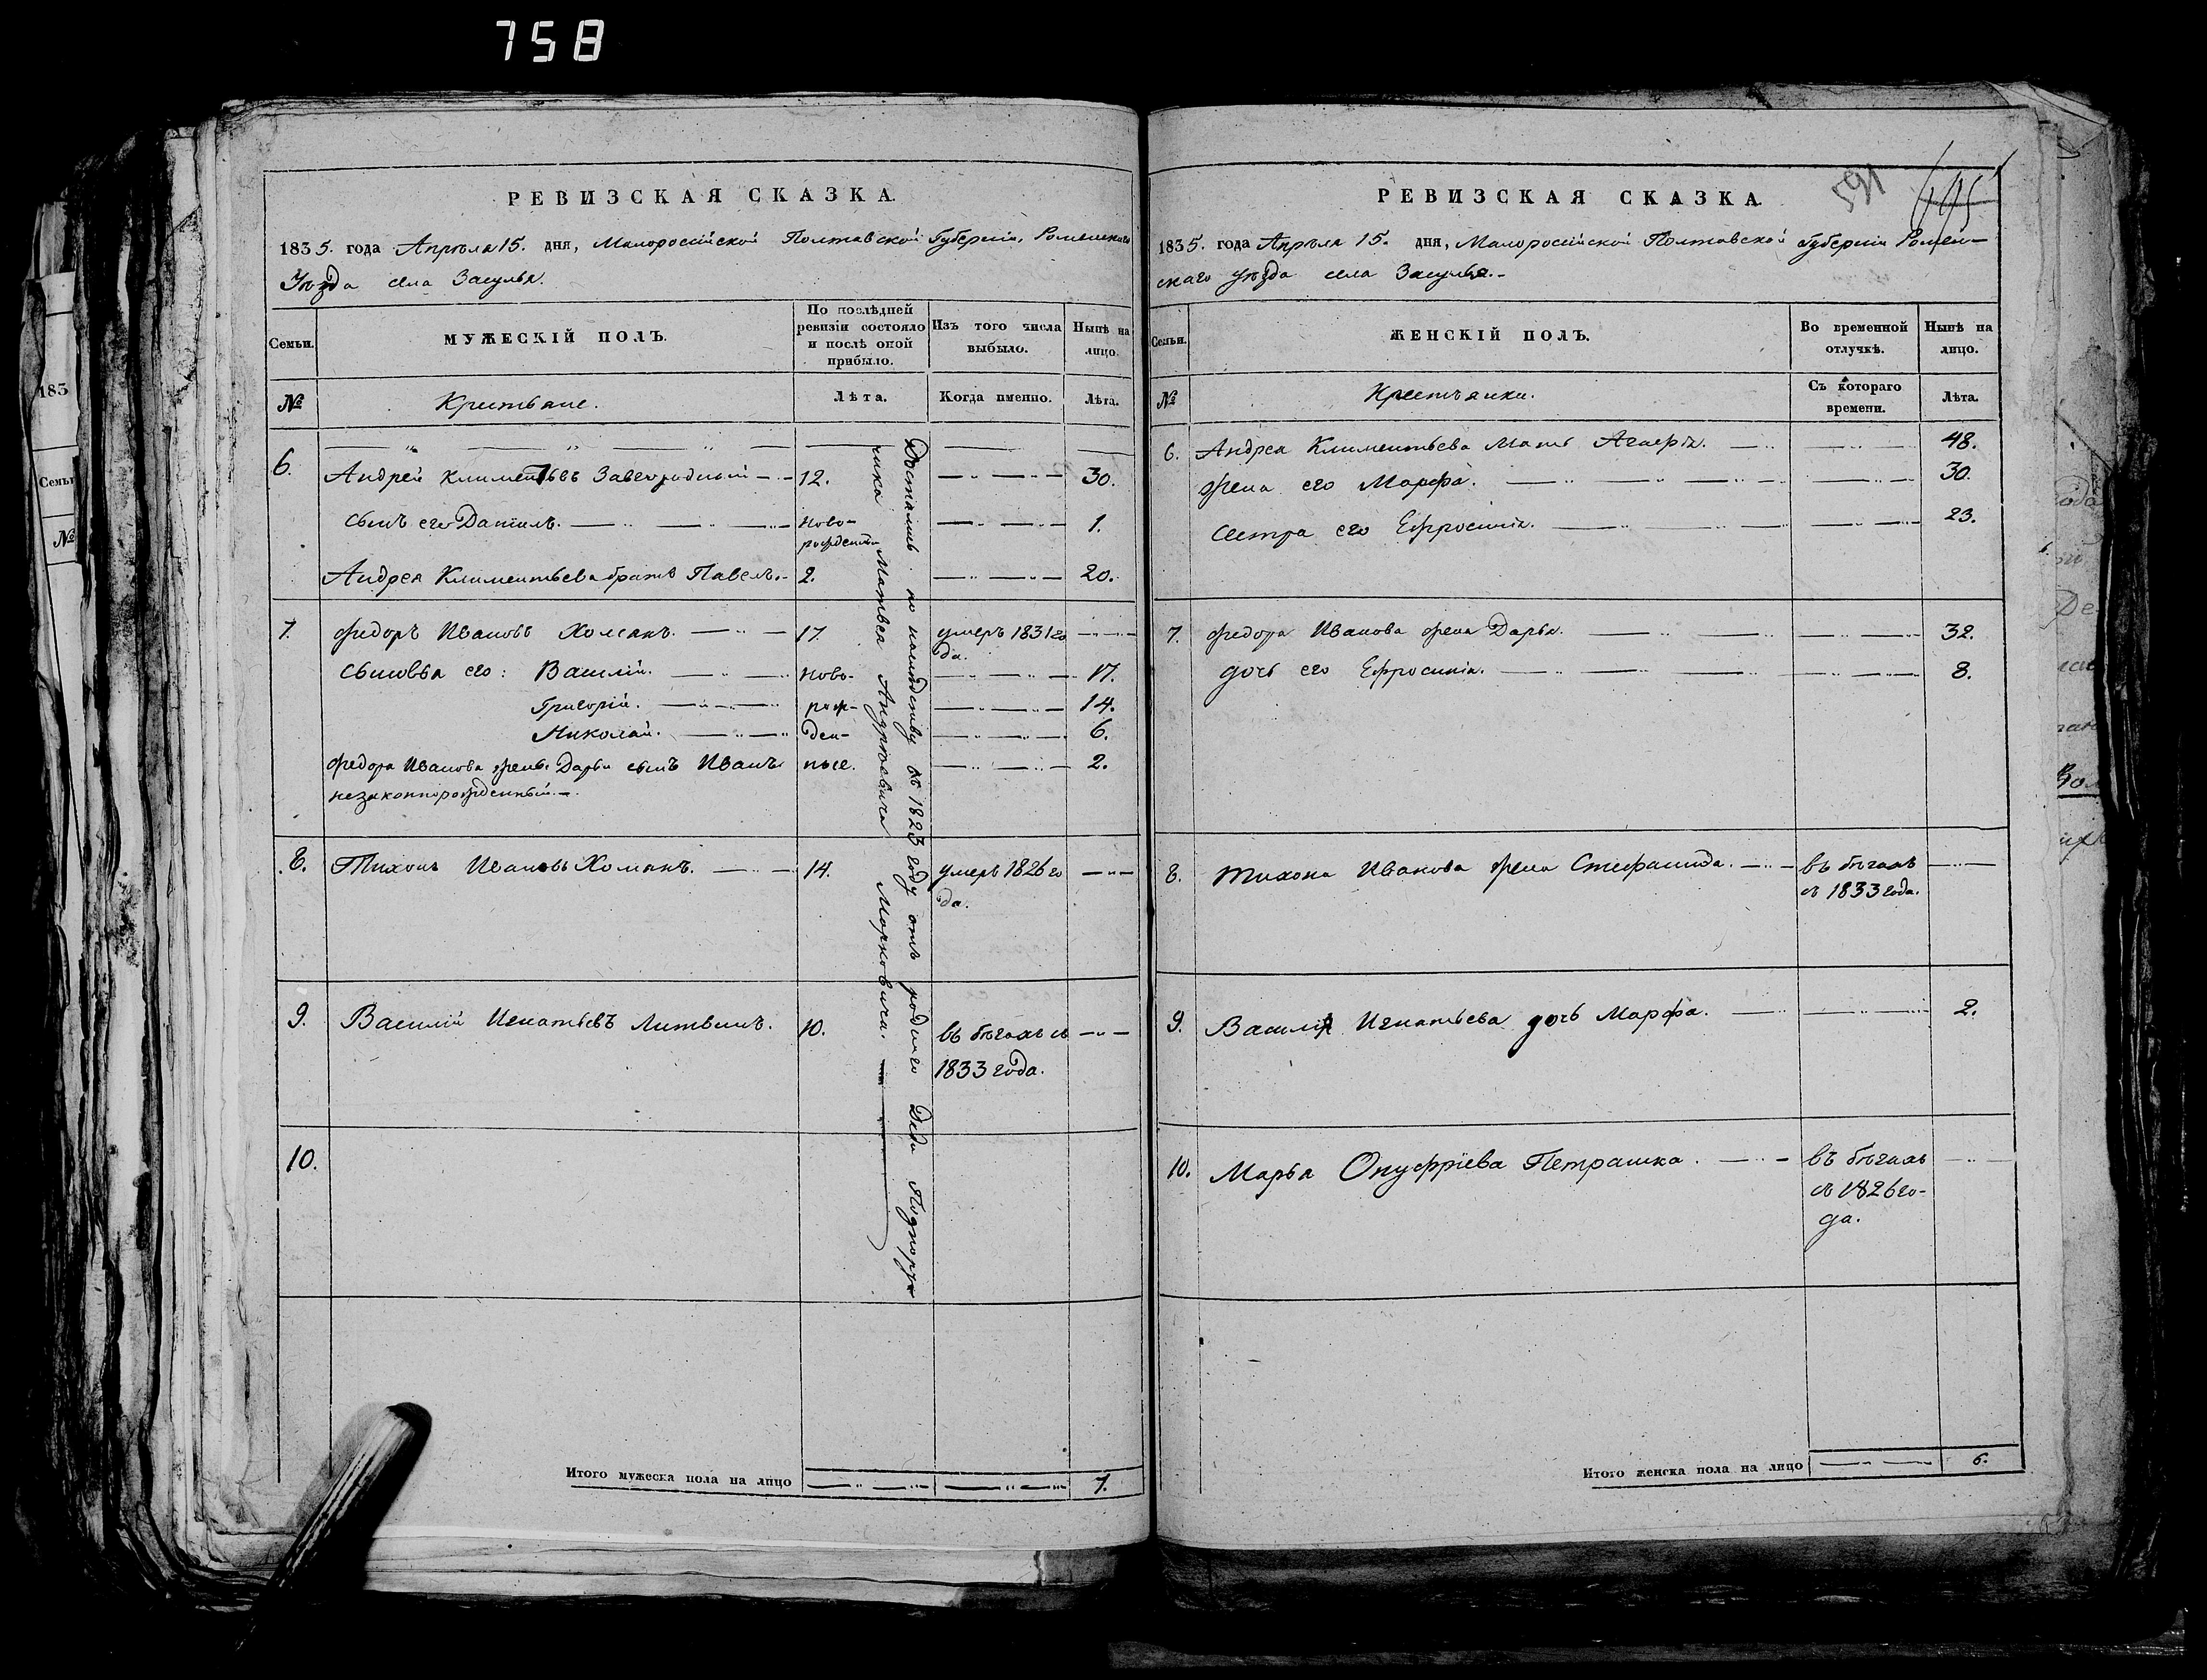 758
РЕВИЗСКАЯ СКАЗКА.
1835. года Апрѣля 15. дня, Малоросійской Полтавской Губерніи, Роменскаго
Уѣзда села Засулья.
Семьи.
МУЖЕСКІЙ ПОЛЪ.
По послѣдней ревизіи состояло и послѣ оной прибыло.
Изъ того числа выбыло.
Нынѣ на лицо.
№
Крестьяне.
Лѣта.
Когда именно.
Лѣта.
6. Андрей Климентьевъ Завгородный 12. 30.
сынъ его Даніилъ. ново-рожденный 1.
Андрея Климентьева братъ Павелъ. 2. 20.
7. Федоръ Ивановъ Хоменъ. 17. умеръ 1831 года.
Сыновья его: Василій. ново- 17.
Григорій. рож- 14.
Николай. ден- 6.
Федора Иванова жены Дарьи сынъ Иванъ ные. 2.
незаконнорожденный.
8. Тихонъ Ивановъ Хоманъ. 14. умеръ 1826 года.
9. Василій Игнатьевъ Литвинъ. 10. въ бѣгахъ съ
1833 года.
10.
Достались по наслѣдству въ 1823 году отъ роднаго Деда Подпору-
чика Матвея Андреевича Марковича.
Итого мужеска пола на лицо 7.
РЕВИЗСКАЯ СКАЗКА.
591
1835. года Апрѣля 15. дня, Малоросійской Полтавской Губерніи Ромен-
скаго Уѣзда села Засулья.
Семьи.
ЖЕНСКІЙ ПОЛЪ.
Во временной отлучкѣ.
Нынѣ на лицо.
№
Крестьянки.
Съ котораго времени.
Лѣта.
6. Андрея Климентьева Мать Агафія. 48.
жена его Марфа. 30.
Сестра его Ефросинія. 23.
7. Федора Иванова жена Дарья. 32.
дочь его Ефросинія. 8.
8. Тихона Иванова жена Стефанида. въ бѣгахъ
съ 1833 года.
9. Василія Игнатьева дочь Марфа. 2.
10. Марья Онуфріева Петрашка. въ бѣгахъ
съ 1826 го-
да.
Итого женска пола на лицо 6.
183
Семьи
№